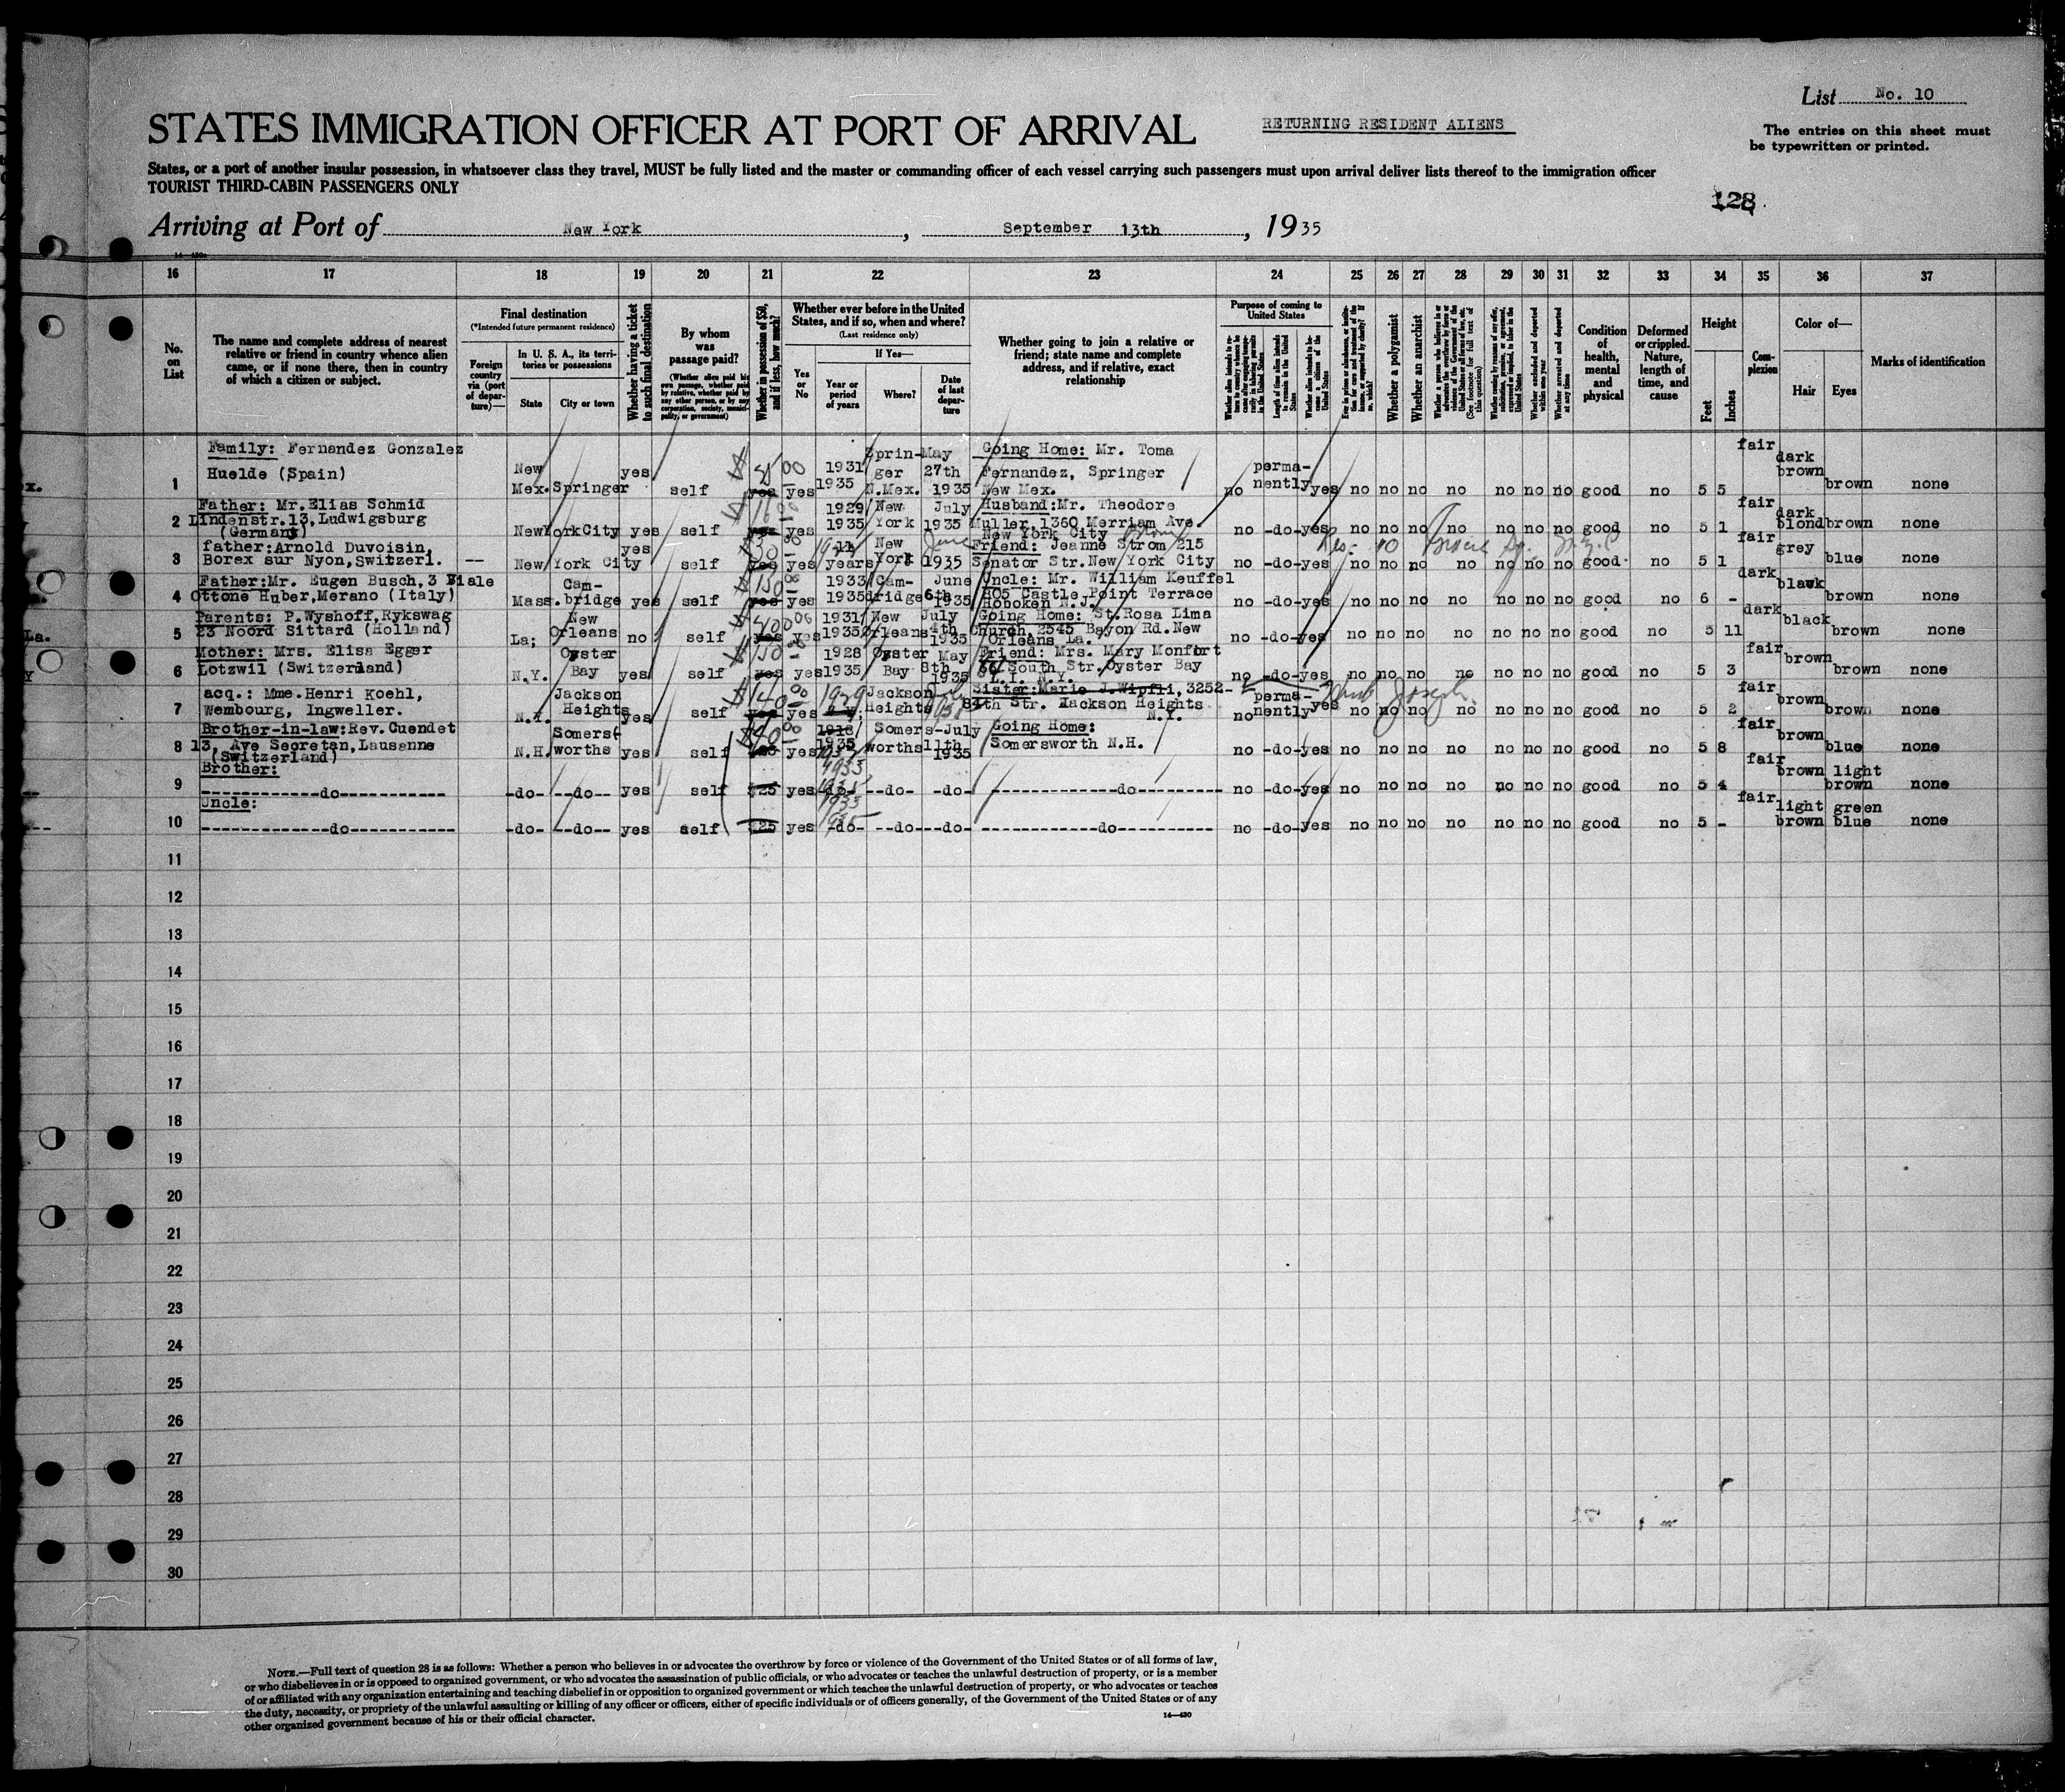 List No. 10
STATES IMMIGRATION OFFICER AT PORT OF ARRIVAL
RETURNING RESIDENT ALIENS
The entries on this sheet must
be typewritten or printed.
States, or a port of another insular possession, in whatsoever class they travel, MUST be fully listed and the master or commanding officer of each vessel carrying such passengers must upon arrival deliver lists thereof to the immigration officer
TOURIST THIRD-CABIN PASSENGERS ONLY
128
Arriving at Port of New York, September 13th, 1935
16 17 18 19 20 21 22 23 24 25 26 27 28 29 30 31 32 33 34 35 36 37
No. on List
The name and complete address of nearest
relative or friend in country whence alien
came, or if none there, then in country
of which a citizen or subject.
Final destination
(*Intended future permanent residence)
Foreign country via (port of departure)—
In U. S. A., its territories or possessions
State
City or town
Whether having a ticket to such final destination
By whom was passage paid?
(Whether alien paid his own passage, whether paid by relative, whether paid by any other person, or by any corporation, society, municipality, or government)
Whether in possession of $50, and if less, how much?
Whether ever before in the United
States, and if so, when and where?
(Last residence only)
Yes or No
If Yes—
Year or period of years
Where?
Date of last departure
Whether going to join a relative or
friend; state name and complete
address, and if relative, exact
relationship
Purpose of coming to
United States
Length of time alien intends to remain in the United States
Whether alien intends to become a citizen of the United States
Whether a polygamist
Whether an anarchist
Whether excluded and deported within one year
Whether arrested and deported at any time
Condition of health, mental and physical
Deformed or crippled. Nature, length of time, and cause
Height
Feet
Inches
Complexion
Color of—
Hair
Eyes
Marks of identification
Family: Fernandez Gonzalez
Huelde (Spain)
1 New Mex. Springer yes self yes yes 1931 1935 Springer N.Mex. May 27th 1935
Going Home: Mr. Toma
Fernandez, Springer
New Mex.
no permanently yes no no no no no no no good no 5 5 fair dark brown brown none
Father: Mr.Elias Schmid
2 Lindenstr.13,Ludwigsburg
(Germany)
NewYorkCity yes self yes yes 1929 1935 New York July 1935
Husband:Mr. Theodore
Muller,1360 Merriam Ave.
New York City Bronx
no -do- yes no no no no no no no good no 5 1 fair dark blond brown none
father:Arnold Duvoisin,
3 Borex sur Nyon,Switzerl. --
New York City yes self yes yes years New York June 1935
Friend: Jeanne Strom 215
Senator Str.New York City
no -do- yes no no no no no no no good no 5 1 fair grey blue none
Father:Mr. Eugen Busch,3 Viale
4 Ottone Huber,Merano (Italy)
Mass. Cambridge yes self $150 yes yes 1933 1935 Cambridge June 6th 1935
Uncle: Mr. William Keuffel
805 Castle Point Terrace
Hoboken N.J.
no -do- yes no no no no no no no good no 6 - dark black brown none
Parents: P.Wyshoff,Rykswag
5 23 Noord Sittard (Holland)
La; New Orleans no self yes yes 1931 1935 New Orleans July 4th 1935
Going Home: St.Rosa Lima
Church,2545 Bayon Rd.New
Orleans La.
no -do- yes no no no no no no no good no 5 11 dark black brown none
Mother: Mrs. Elisa Egger
6 Lotzwil (Switzerland)
N.Y. Oyster Bay yes self $150 yes yes 1928 1935 Oyster Bay May 8th 1935
Friend: Mrs. Mary Monfort
South Str.Oyster Bay
L.I. N.Y.
no -do- yes no no no no no no no good no 5 3 fair brown brown none
acq.: Mme.Henri Koehl,
7 Wembourg, Ingweller.
N.Y. Jackson Heights yes self $140 yes yes 1929 Jackson Heights
Sister:Marie J.Wipfli, 3252-
84th Str. Jackson Heights
N.Y.
no permanently yes no no no no no no no good no 5 2 fair brown brown none
Brother-in-law:Rev.Cuendet
8 13, Ave Secretan,Lausanne
(Switzerland)
N.H. Somersworths yes self yes 1918 1935 Somersworths July 11th 1935
Going Home:
Somersworth N.H.
no -do- yes no no no no no no no good no 5 8 fair brown blue none
Brother:
9 -do- -do- -do- yes self $25 yes -do- -do- -do- -do- no -do- yes no no no no no no no good no 5 4 fair brown light brown none
Uncle:
10 -do- -do- -do- yes self $25 yes -do- -do- -do- -do- no -do- yes no no no no no no no good no 5 - fair light brown green blue none
11
12
13
14
15
16
17
18
19
20
21
22
23
24
25
26
27
28
29
30
NOTE.—Full text of question 28 is as follows: Whether a person who believes in or advocates the overthrow by force or violence of the Government of the United States or of all forms of law,
or who disbelieves in or is opposed to organized government, or who advocates the assassination of public officials, or who advocates or teaches the unlawful destruction of property, or is a member
of or affiliated with any organization entertaining and teaching disbelief in or opposition to organized government or which teaches the unlawful destruction of property, or who advocates or teaches
the duty, necessity, or propriety of the unlawful assaulting or killing of any officer or officers, either of specific individuals or of officers generally, of the Government of the United States or of any
other organized government because of his or their official character.
14—430